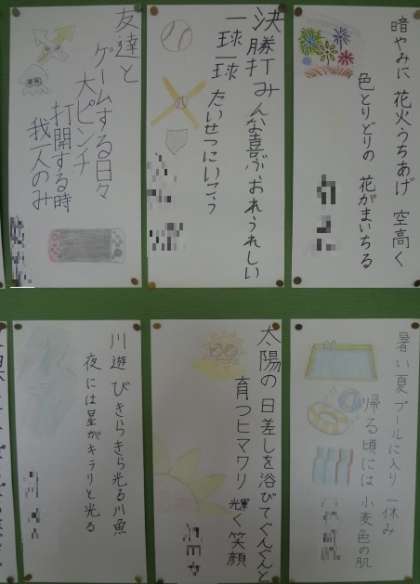 暗やみに 花火うちあげ 空高く
色とりどりの 花がまいちる
決勝打みんな喜ぶおれうれしい
一球一球 たいせつにいこう
友達と
ゲームする日々
大ピンチ
打開する時
我一人のみ
暑い夏 プールに入り 一休み
帰る頃には 小麦色の肌
太陽の 日差しを浴びてぐんぐんと
育つヒマワリ 輝く笑顔
川遊び きらきら光る川魚
夜には星がキラリと光る